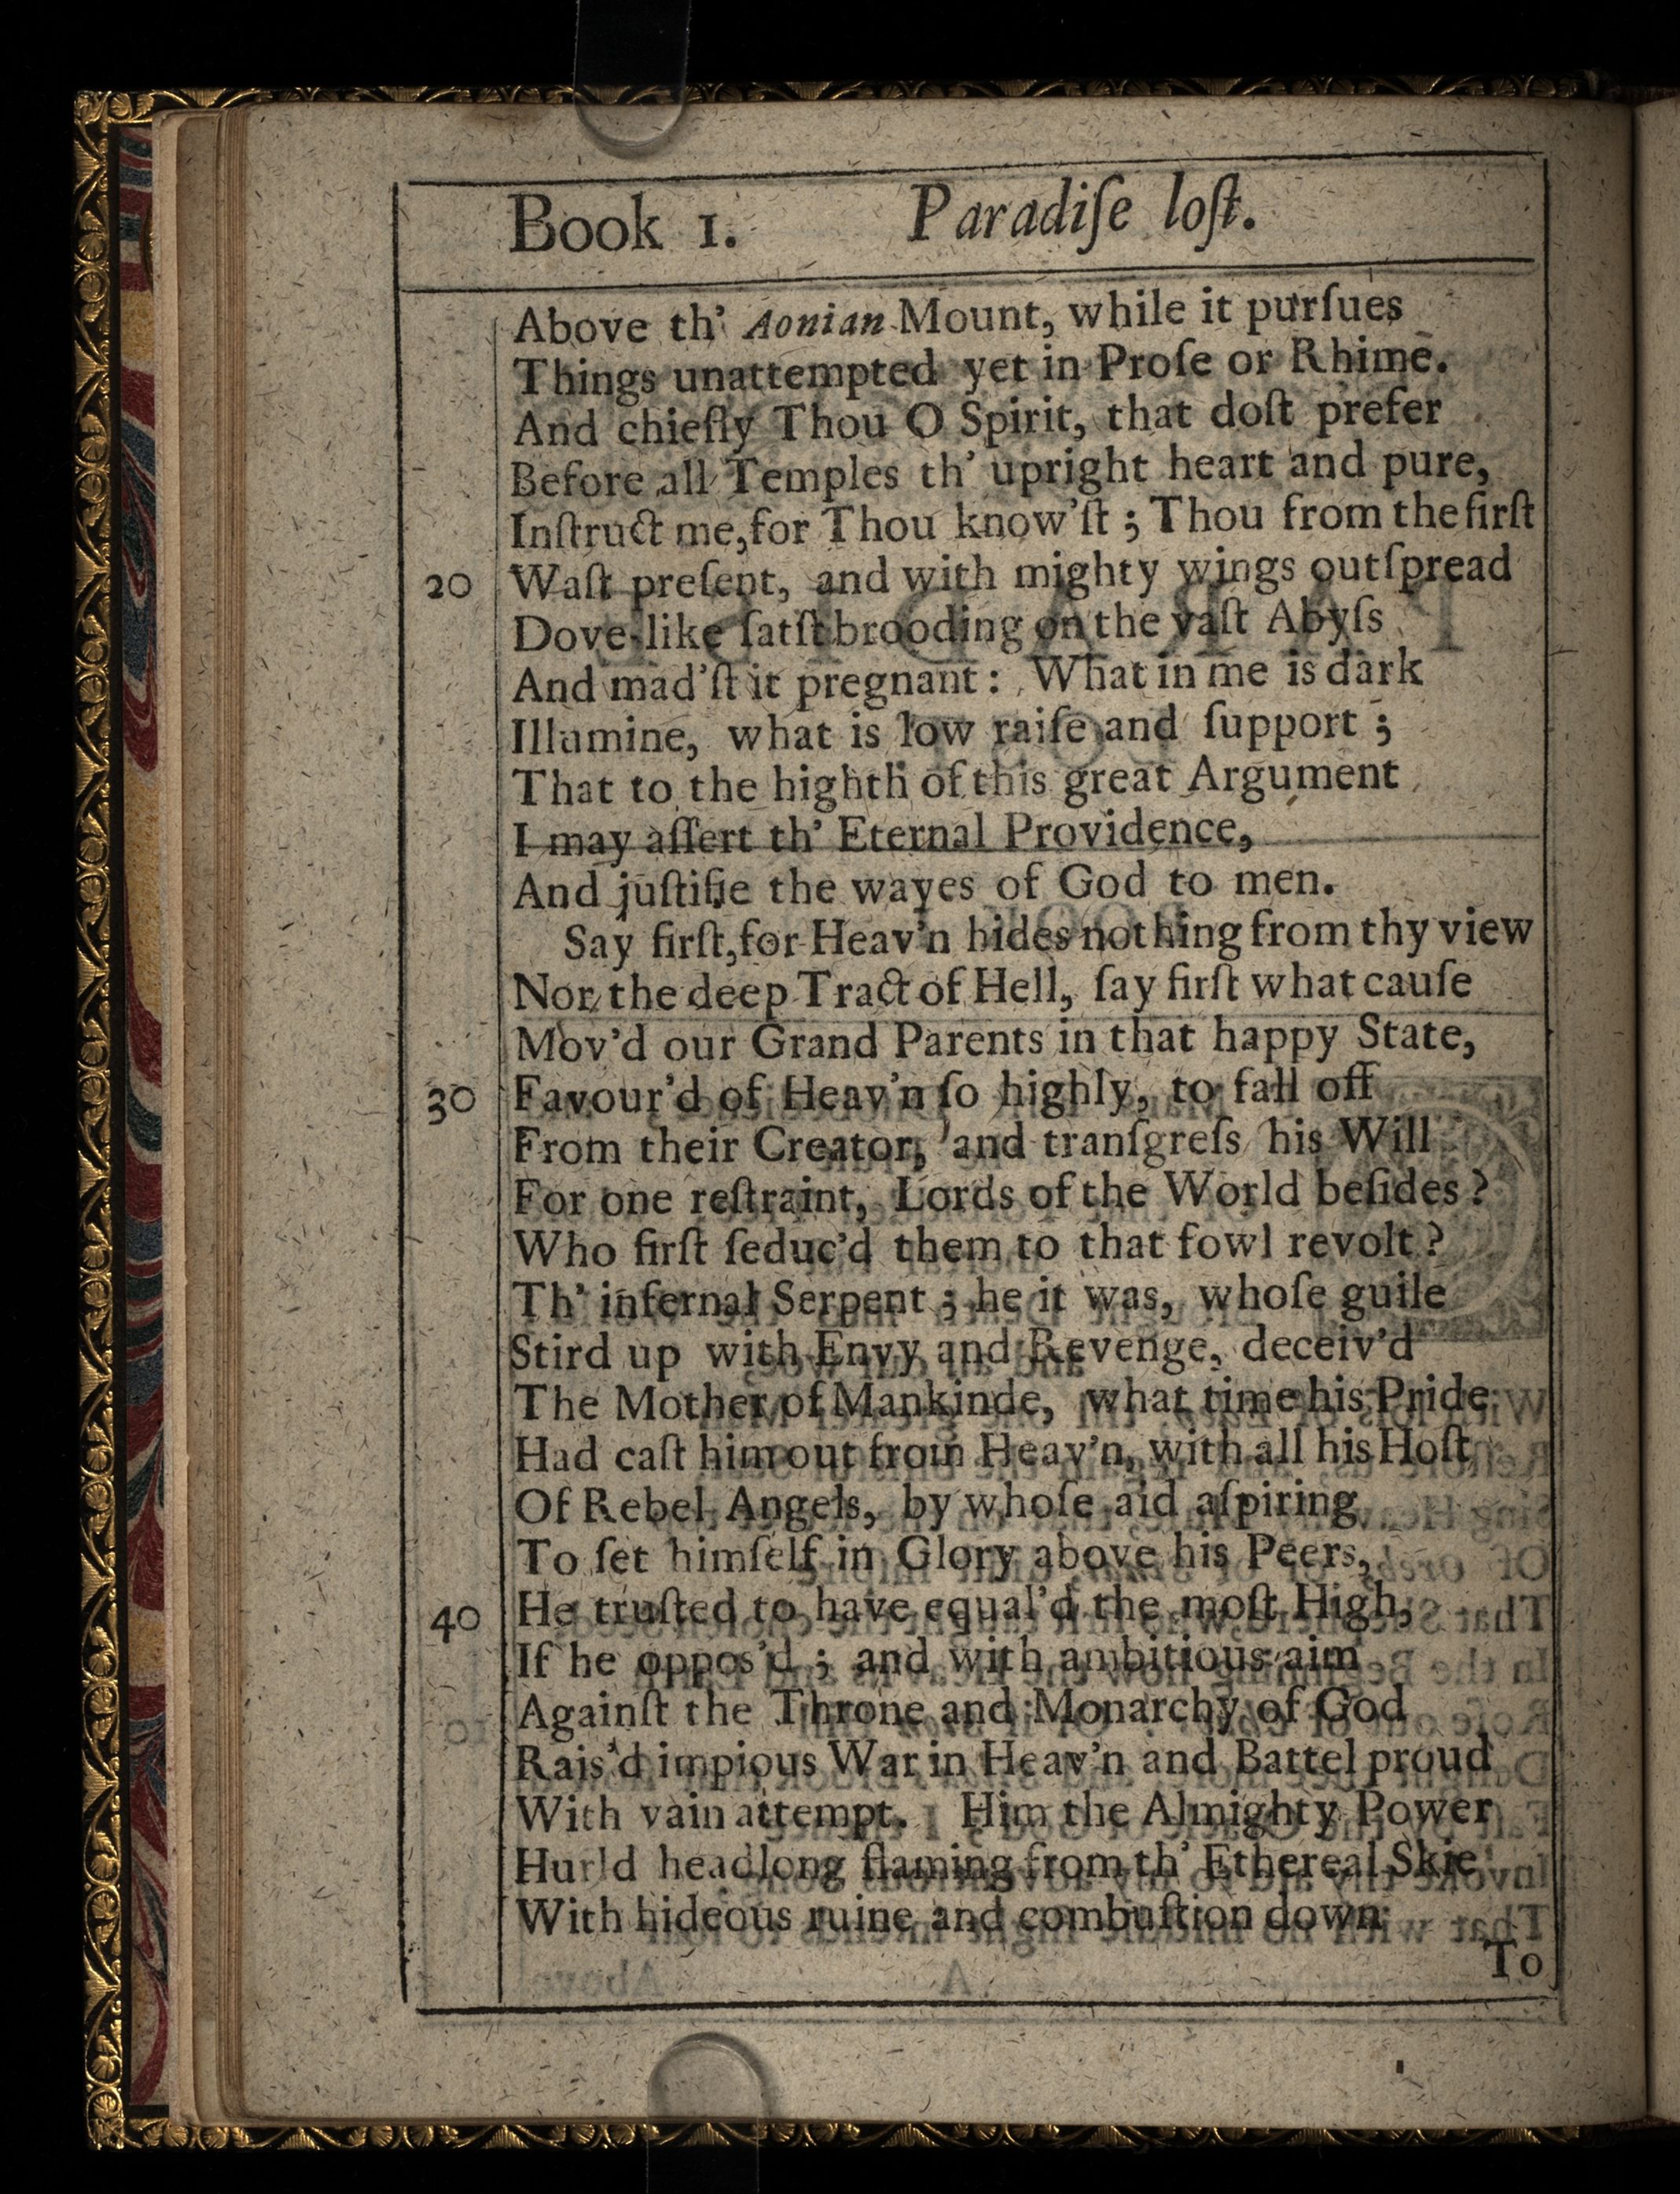 Book 1. Paradiſe loſt.
Above th' Aonian Mount, while it purſues
Things unattempted yet in Proſe or Rhime.
And chiefly Thou O Spirit, that doſt prefer
Before all Temples th' upright heart and pure,
Inſtruct me, for Thou know'ſt ; Thou from the firſt
20 Waſt preſent, and with mighty wings outſpread
Dove-like ſatſt brooding on the vaſt Abyſs
And mad'ſt it pregnant : What in me is dark
Illumine, what is low raiſe and ſupport ;
That to the highth of this great Argument
I may aſſert th' Eternal Providence,
And juſtifie the wayes of God to men.
Say firſt, for Heav'n hides nothing from thy view
Nor the deep Tract of Hell, ſay firſt what cauſe
Mov'd our Grand Parents in that happy State,
30 Favour'd of Heav'n ſo highly, to fall off
From their Creator, and tranſgreſs his Will
For one reſtraint, Lords of the World beſides ?
Who firſt ſeduc'd them to that fowl revolt ?
Th' infernal Serpent ; he it was, whoſe guile
Stird up with Envy and Revenge, deceiv'd
The Mother of Mankinde, what time his Pride
Had caſt him out from Heav'n, with all his Hoſt
Of Rebel Angels, by whoſe aid aſpiring
To ſet himſelf in Glory above his Peers,
40 He truſted to have equal'd the moſt High,
If he oppos'd ; and with ambitious aim
Againſt the Throne and Monarchy of God
Rais'd impious War in Heav'n and Battel proud
With vain attempt. Him the Almighty Power
Hurld headlong flaming from th' Ethereal Skie
With hideous ruine and combuſtion down
To